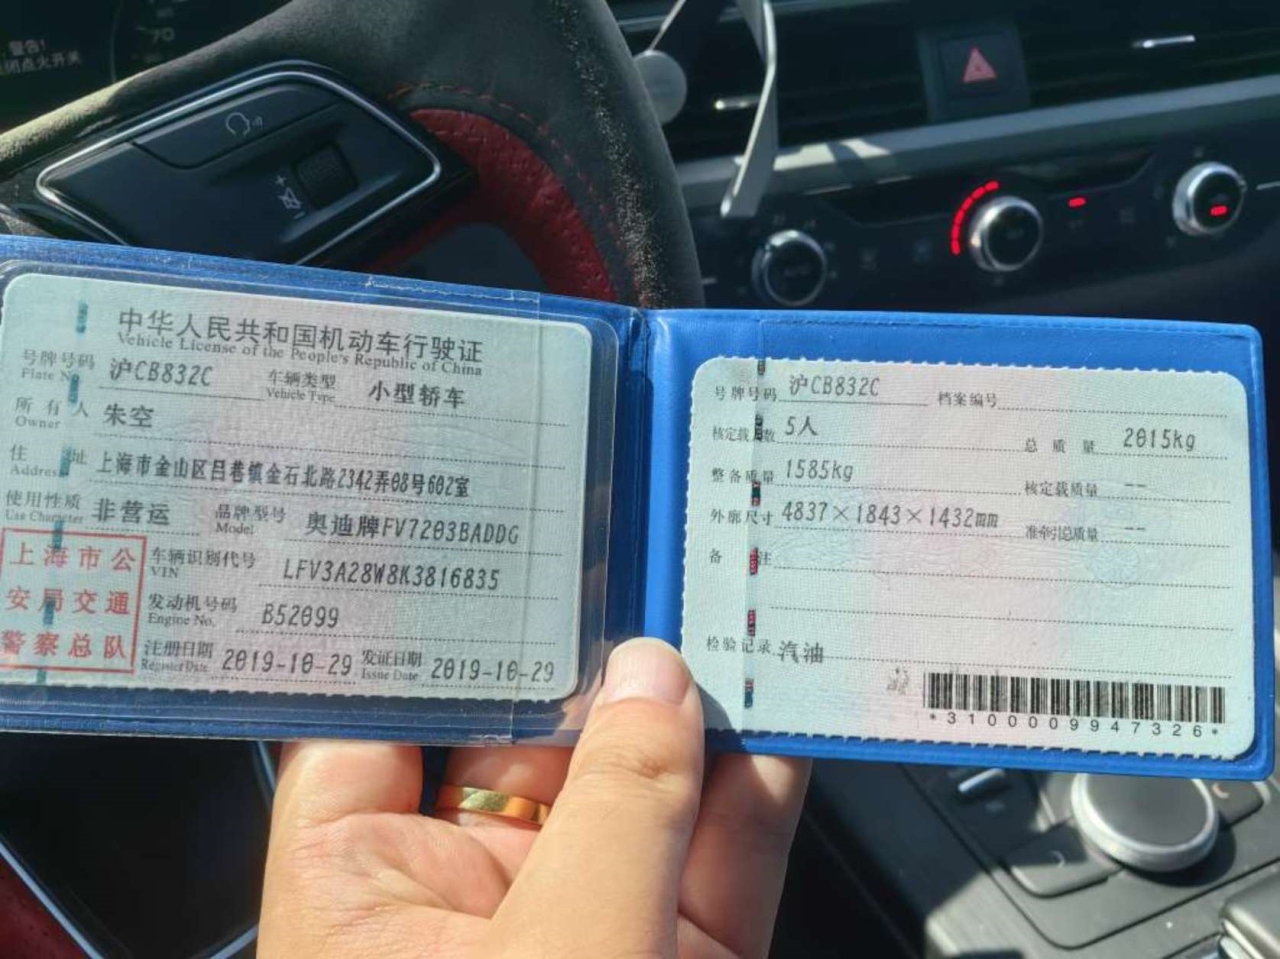 警告!
闭点火开关
70
中华人民共和国机动车行驶证
Vehicle License of the People's Republic of China
号牌号码 沪CB832C 车辆类型 小型轿车
Plate No. Vehicle Type
所有人 朱空
Owner
住址 上海市金山区吕巷镇金石北路2342弄08号602室
Address
使用性质 非营运 品牌型号 奥迪牌FV7203BADDG
Use Character Model
上海市公安局交通警察总队
车辆识别代号 LFV3A28W8K3816835
VIN
发动机号码 B52099
Engine No.
注册日期 2019-10-29 发证日期 2019-10-29
Register Date Issue Date
号牌号码 沪CB832C 档案编号
核定载人数 5人 总质量 2015kg
整备质量 1585kg 核定载质量 --
外廓尺寸 4837×1843×1432mm 准牵引总质量 --
备注
检验记录 汽油
*3100009947326*